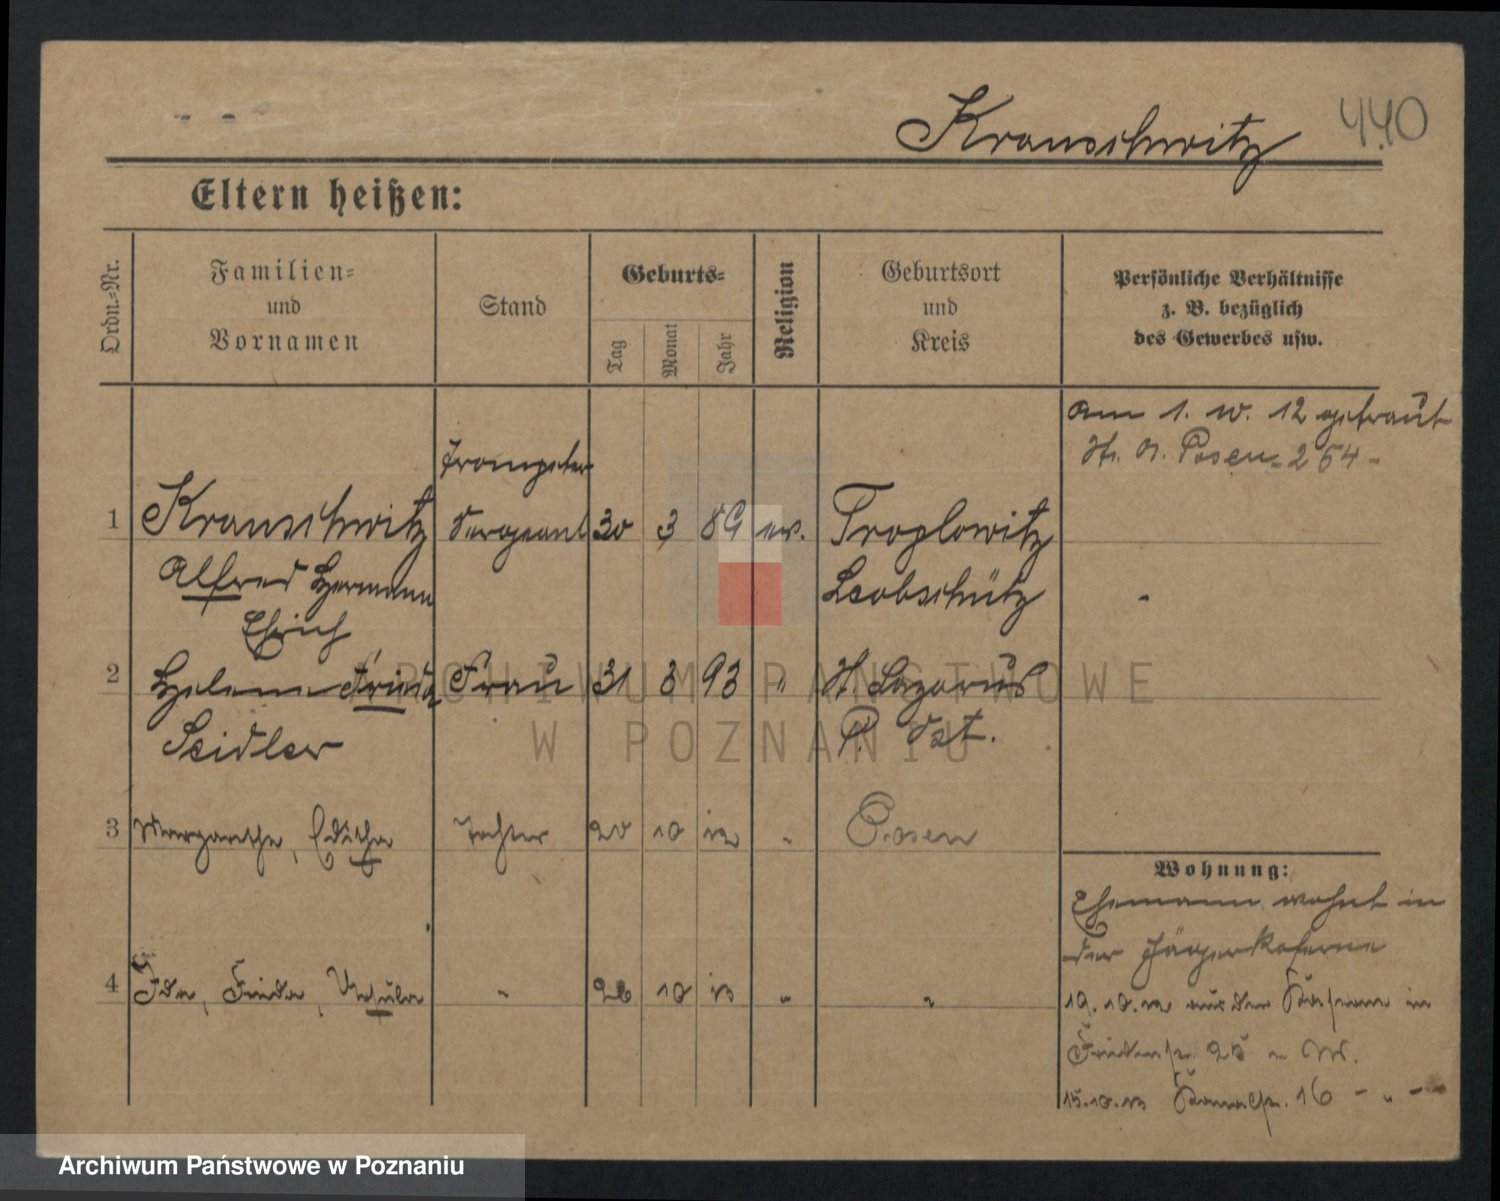 Krauschwitz 440
Eltern heißen:
Ordn.=Nr.
Familien=
und
Vornamen
Stand
Geburts=
Tag
Monat
Jahr
Religion
Geburtsort
und
Kreis
Persönliche Verhältnisse
z. B. bezüglich
des Gewerbes usw.
am 1. 10. 12 getraut
Posen 264
Trompeter
1 Krauschwitz Sergeant 30 3 89 ev. Troplowitz
Alfred Hermann Leobschütz
Erich
2 Helene Frieda Frau 31 3 93 " St. Lazarus
Seidler P. Ost.
3 Margarethe, Editha Tochter 20 10 12 " Posen
Wohnung:
Ehemann wohnt in
der Jägerkaserne
4 Ida, Frieda, Ursula " 26 10 13 " "
19.10.12 aus der Kaserne in
25 n W.
15.10.13 Kanalstr. 16 - " -
ARCHIWUM PAŃSTWOWE
W POZNANIU
Archiwum Państwowe w Poznaniu